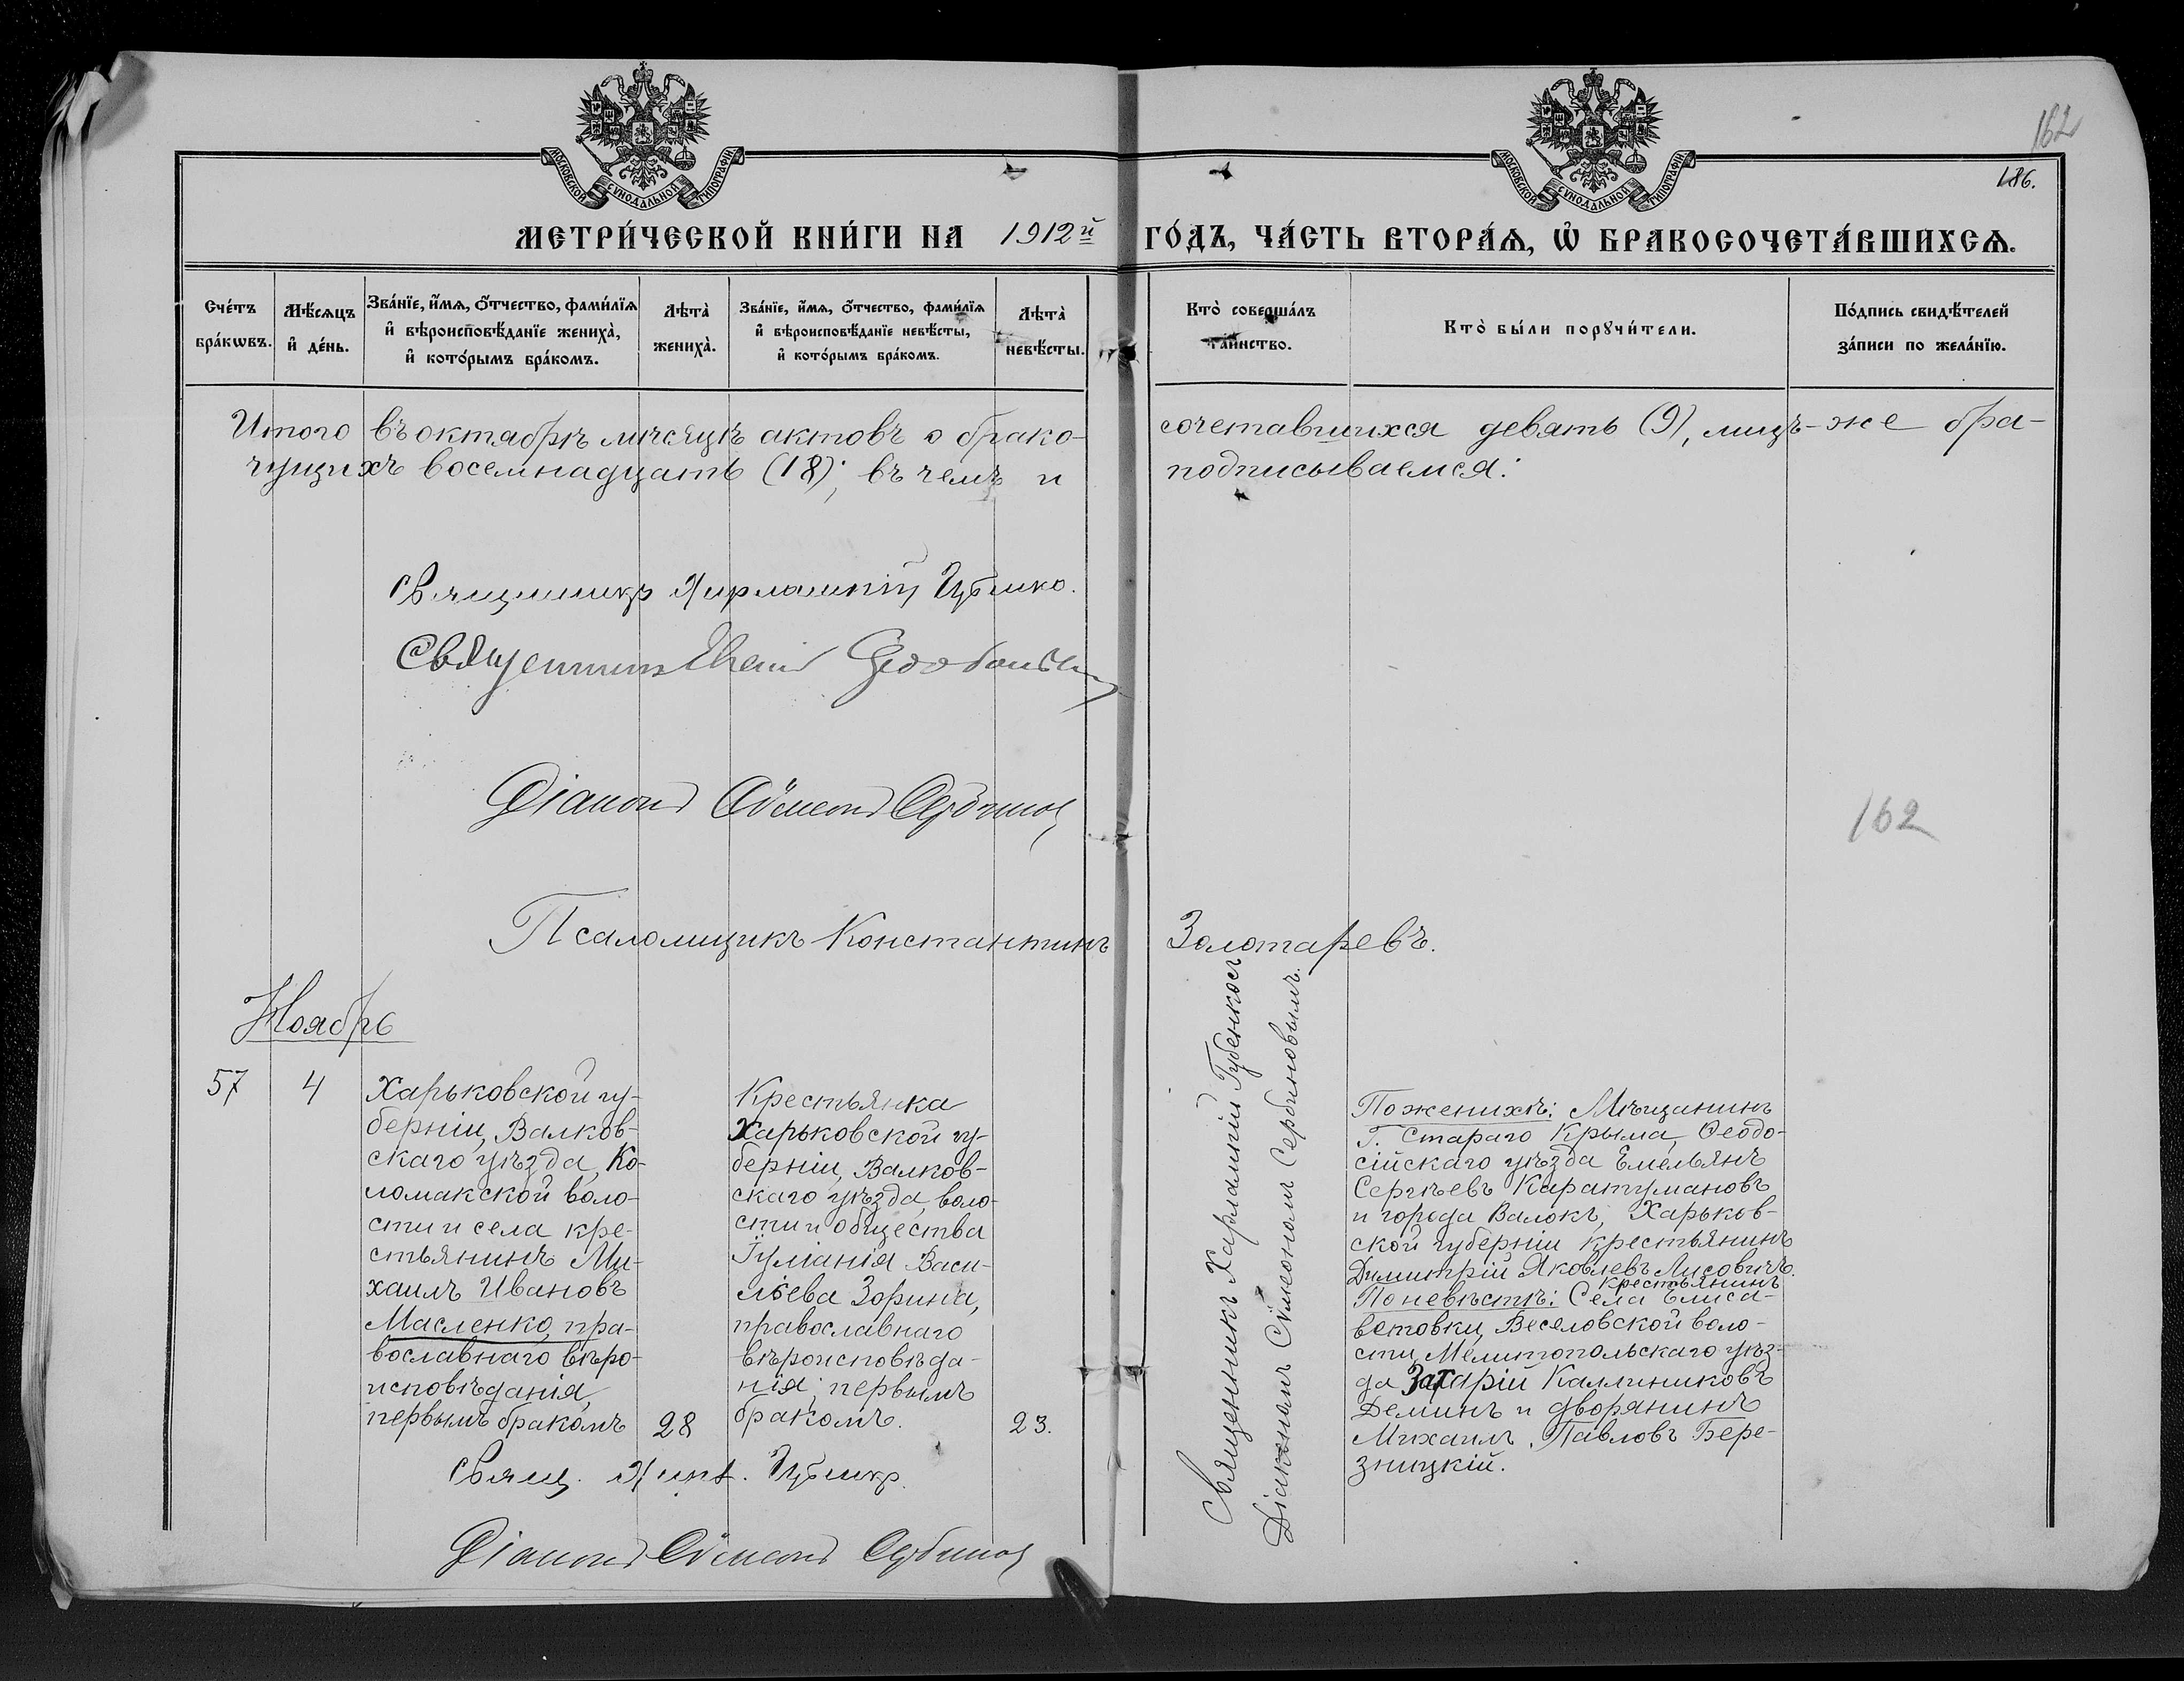 МОСКОВСКОЙ СѴНОДАЛЬНОЙ ТИПОГРАФІИ
МОСКОВСКОЙ СѴНОДАЛЬНОЙ ТИПОГРАФІИ
162
186.
МЕТРИ́ЧЕСКОЙ КНИ́ГИ НА 1912й ГО́ДЪ, ЧА́СТЬ ВТОРА́Ѧ, Ѡ БРАКОСОЧЕТА́ВШИХСѦ.
Сче́тъ
бра́кѡвъ.
Мѣ́сѧцъ
и҆ де́нь.
Зва́нїе, и҆́мѧ, ѻ҆́тчество, фами́лїѧ
и҆ вѣроисповѣ́данїе жениха̀,
и҆ кото́рымъ бра́комъ.
Лѣта̀
жениха̀.
Зва́нїе, и҆́мѧ, ѻ҆́тчество, фами́лїѧ
и҆ вѣроисповѣ́данїе невѣ́сты,
и҆ кото́рымъ бра́комъ.
Лѣта̀
невѣ́сты.
Кто̀ соверша́лъ
та́инство.
Кто̀ бы́ли порꙋчи́тели.
По́дпись свидѣ́телей
за́писи по жела́нїю.
Итого въ октябрѣ мѣсяцѣ актовъ о брако-сочетавшихся девять (9), лицъ-же бра-
чущихъ восемнадцать (18); въ чемъ и подписываемся:
Священникъ Харлампій Губенко.
Священникъ
Діаконъ Сѵмеонъ Сербиновъ
162
Псаломщикъ Константинъ Золотаревъ.
Ноябрь
57
4
Харьковской гу-
берніи, Валков-
скаго уѣзда, Ко-
ломакской воло-
сти и села кре-
стьянинъ Ми-
хаилъ Ивановъ
Масленко, пра-
вославнаго вѣро-
исповѣданія,
первымъ бракомъ
28
Крестьянка
Харьковской гу-
берніи, Валков-
скаго уѣзда, воло-
сти и общества
Іуліанія Васи-
льева Зорина,
православнаго
вѣроисповѣда-
нія; первымъ
бракомъ.
23.
Священникъ Харлампій Губенкосъ
Діакономъ Сѵмеономъ Сербиновымъ.
По женихѣ: Мѣщанинъ
г. Стараго Крыма, Ѳеодо-
сійскаго уѣзда Емельянъ
Сергѣевъ Каратумановъ
и города Валокъ, Харьков-
ской губерніи крестьянинъ
Димитрій Яковлевъ Лисовичъ.
крестьянинъ
По невѣстѣ: Села Елиса-
ветовки, Веселовской воло-
сти, Мелитопольскаго уѣз-
да Захарій Каллиниковъ
Деминъ и дворянинъ
Михаилъ Павловъ Бере-
зницкій.
Свящ. Губенко
Діаконъ Сѵмеонъ Сербиновъ